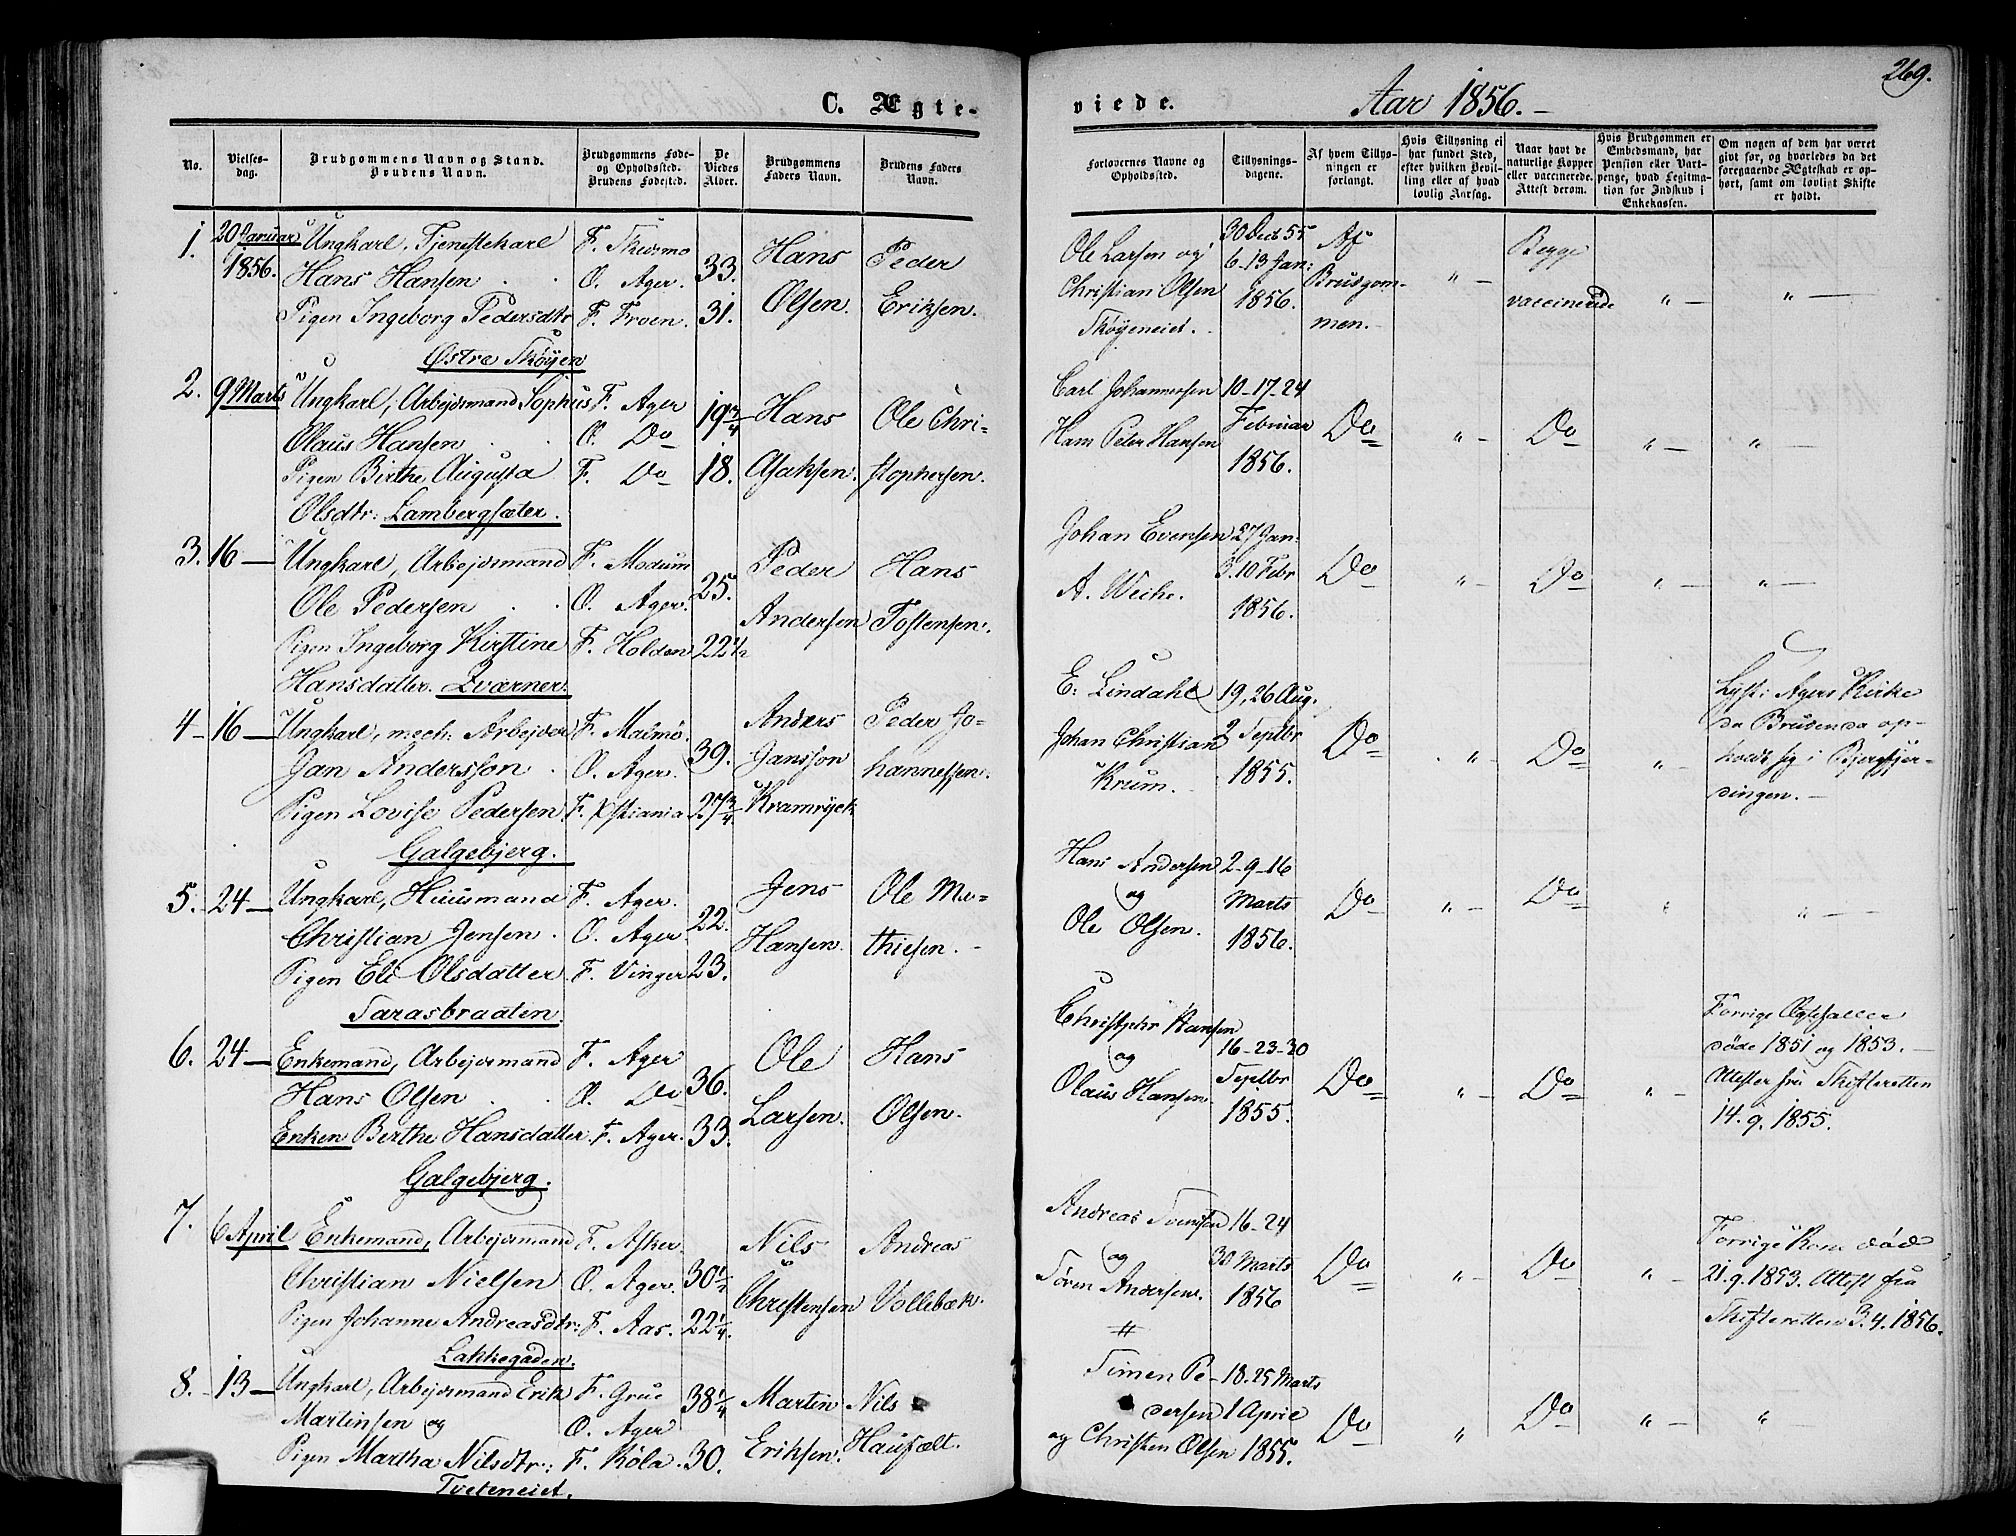 269.
C. Ægte-
viede.
Aar 1856.-
No.
Vielses-
dag.
Brudgommens Navn og Stand.
Brudens Navn.
Brudgommens Føde-
og Opholdssted.
Brudens Fødested.
De
Viedes
Alder.
Brudgommens
Faders Navn.
Brudens Faders
Navn.
Forlovernes Navne og
Opholdssted.
Tillysnings-
dagene.
Af hvem Tillys-
ningen er
forlangt.
Hvis Tillysning ei
har fundet Sted,
efter hvilken Bevil-
ling eller af hvad
lovlig Aarsag.
Naar havt de
naturlige Kopper
eller vaccinerede.
Attest derom.
Hvis Brudgommen er
Embedsmand, har
Pension eller Vart-
penge, hvad Legitima-
tion for Indskud i
Enkekassen.
Om nogen af dem har været
givt før, og hvorledes da det
foregaaende Ægteskab er op-
hørt, samt om lovligt Skifte
er holdt.
1.
20 Januar
1856.
Ungkarl, Tjenestekarl
Hans Hansen
Pigen Ingeborg Pedersdtr
Østre Skøyen
F. Skedsmo
O. Ager.
F. Froen.
33.
31.
Hans
Olsen.
Peder
Eriksen.
Ole Larsen og
Christian Olsen
Skøyeneiet.
30 Decb 55
6-13 Jan:
1856.
Af
Brudgom-
men.
" -
Begge
vaccinerede
" -
" -
2.
9 Marts
Ungkarl, Arbejdsmand Sophus
Olaus Hansen
Pigen Birthe Augusta
Olsdtr: Lambergsæter.
F. Ager
O. Do
F. Do
19 3/4
18.
Hans
Asaksen.
Ole Chri-
stophersen.
Carl Johannesen
Hans Peter Hansen
10-17-24
Februar
1856.
Do
" -
Do
" -
" -
3.
16 -
Ungkarl, Arbejdsmand
Ole Pedersen
Pigen Ingeborg Kirstine
Hansdatter. Qværner.
F. Modum
O. Ager.
F. Holden
25.
22 1/2
Peder
Andersen
Hans
Tostensen.
Johan Evensen
A. Weihe.
27 Jan.
3. 10 Febr
1856.
Do
" -
Do
" -
" -
4 -
16 -
Ungkarl, mech: Arbejder
Jan Andersson
Pigen Lovise Pedersen
Galgebjerg.
F. Malmø.
O. Ager.
F. Xstiania
39.
27 3/4
Anders
Jansson
Kramsjek
Peder Jo-
hannessen.
E. Lindahl
Johan Christian
Krum.
19, 26 Aug.
2 Septbr
1855.
Do
" -
Do
" -
Lyst i Agers Kirke
da Bruden da op-
holdt sig i Bjergfjer-
dingen. -
5.
24 -
Ungkarl, Huusmand
Christian Jensen.
Pigen Eli Olsdatter
Tarasbraaten.
F. Ager.
O. Ager
F. Vinger
22.
23.
Jens
Hansen.
Ole Ma-
thiesen. -
Hans Andersen
og
Ole Olsen.
2-9-16
Marts
1856.
Do
" -
Do
"
" -
6.
24 -
Enkemand, Arbejdsmand
Hans Olsen
Enken Berthe Hansdatter
Galgebjerg.
F. Ager
O. Do
F. Ager.
36.
33.
Ole
Larsen.
Hans
Olsen.
Christopher Hansen
og
Olaus Hansen
16-23-30
Septbr
1855.
Do
" -
Do
" -
Forrige Ægtefaller
døde 1851 og 1853. -
Attester fra Skifteretten
14. 9. 1855.
7.
6 April
Enkemand, Arbejdsmand
Christian Nielsen
Pigen Johanne Andreasdtr:
Lakkegaden.
F. Asker.
O. Ager.
F. Aas.
30 1/2
22 1/4.
Nils
Christensen
Andreas
Vollebæk.
Andreas Svendsen
og
Søren Andersen.
16-24
30 Marts
1856
Do
" -
Do
" -
Forrige Kone død
21. 9. 1853. Attest fra
Skifteretten 3. 4. 1856.
8. -
13 -
Ungkarl, Arbejdsmand Erik
Martinsen og
Pigen Martha Nilsdtr:
Tveteneiet.
F. Grue
O. Ager
F. Köla.
38 1/4
30.
Martin
Eriksen.
Nils
Haufælt.
Simen Pe-
dersen
og Christen Olsen
18. 25 Marts
1 April
1855.
Do
"
Do
" -
"